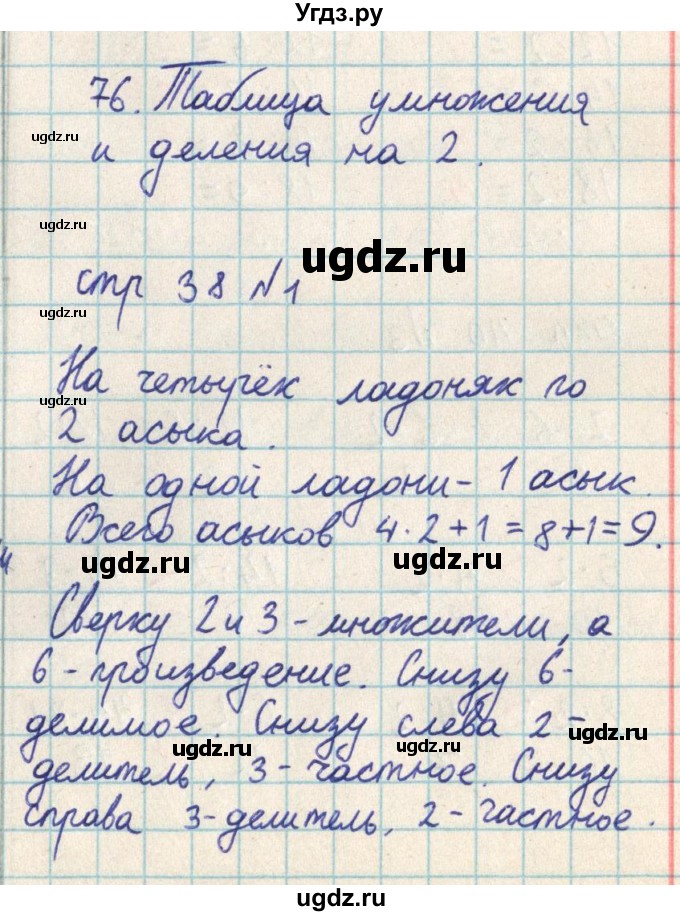 Угдз.ру
76. Таблица умножения
ugdz.ru
и деления на 2.
ugdz.ru
ugdz.ru
стр 38 №1
ugdz.ru
На четырёх ладонях по
2 асыка.
На одной ладони - 1 асык.
Всего асыков 4·2+1=8+1=9.
ugdz.ru ugdz.ru ugdz.ru
Сверху 2 и 3 - множители, а
6 - произведение. Снизу 6-
делимое. Снизу слева 2 -
ugdz.ru ugdz.ru
делитель, 3 - частное. Снизу
ugdz.ru
справа 3-делитель, 2 - частное.
ugdz.ru
ugdz.ru